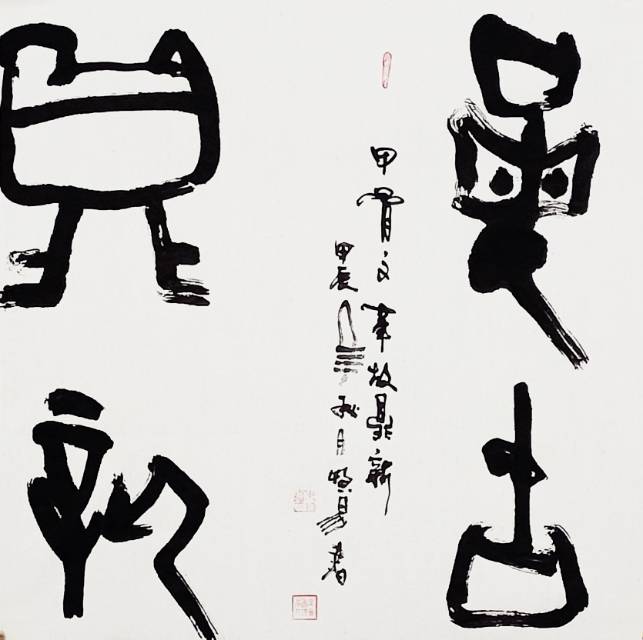 革故
鼎新
甲骨文革故鼎新
甲辰秋月書